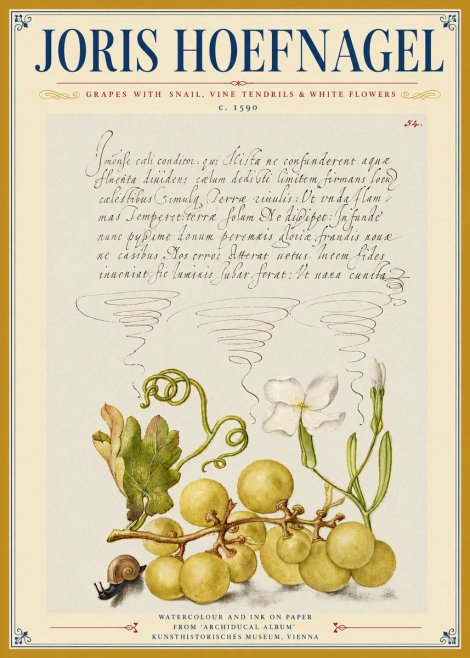 JORIS HOEFNAGEL
GRAPES WITH SNAIL, VINE TENDRILS & WHITE FLOWERS
c. 1590
54.
Jmense cæli conditor: qui Mista ne confunderent aquæ
fluenta diuidens cælum dedisti limitem firmans locũ
cælestibus Simulq Terræ riuulis: Ut vnda flam-
mas Temperit: terræ solum Ne dissipet: Infunde
nunc pyssime donum perennis gloriæ fraudis nouæ
ne casibus Nos error Atterat uetus lucem fides
inueniat sic luminis Jubar ferat: Ut uana cuncta
WATERCOLOUR AND INK ON PAPER
FROM 'ARCHIDUCAL ALBUM'
KUNSTHISTORISCHES MUSEUM, VIENNA